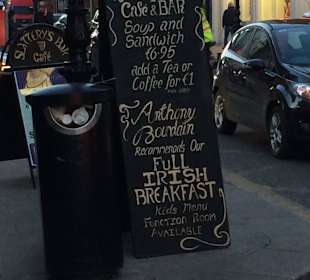 SLATTERY'S
Café
Café & BAR
Soup and
Sandwich
€6.95
add a Tea or
Coffee for €1
Anthony
Bourdain
Recommends Our
FULL
IRISH
BREAKFAST
Kids Menu
Function Room
AVAILABLE